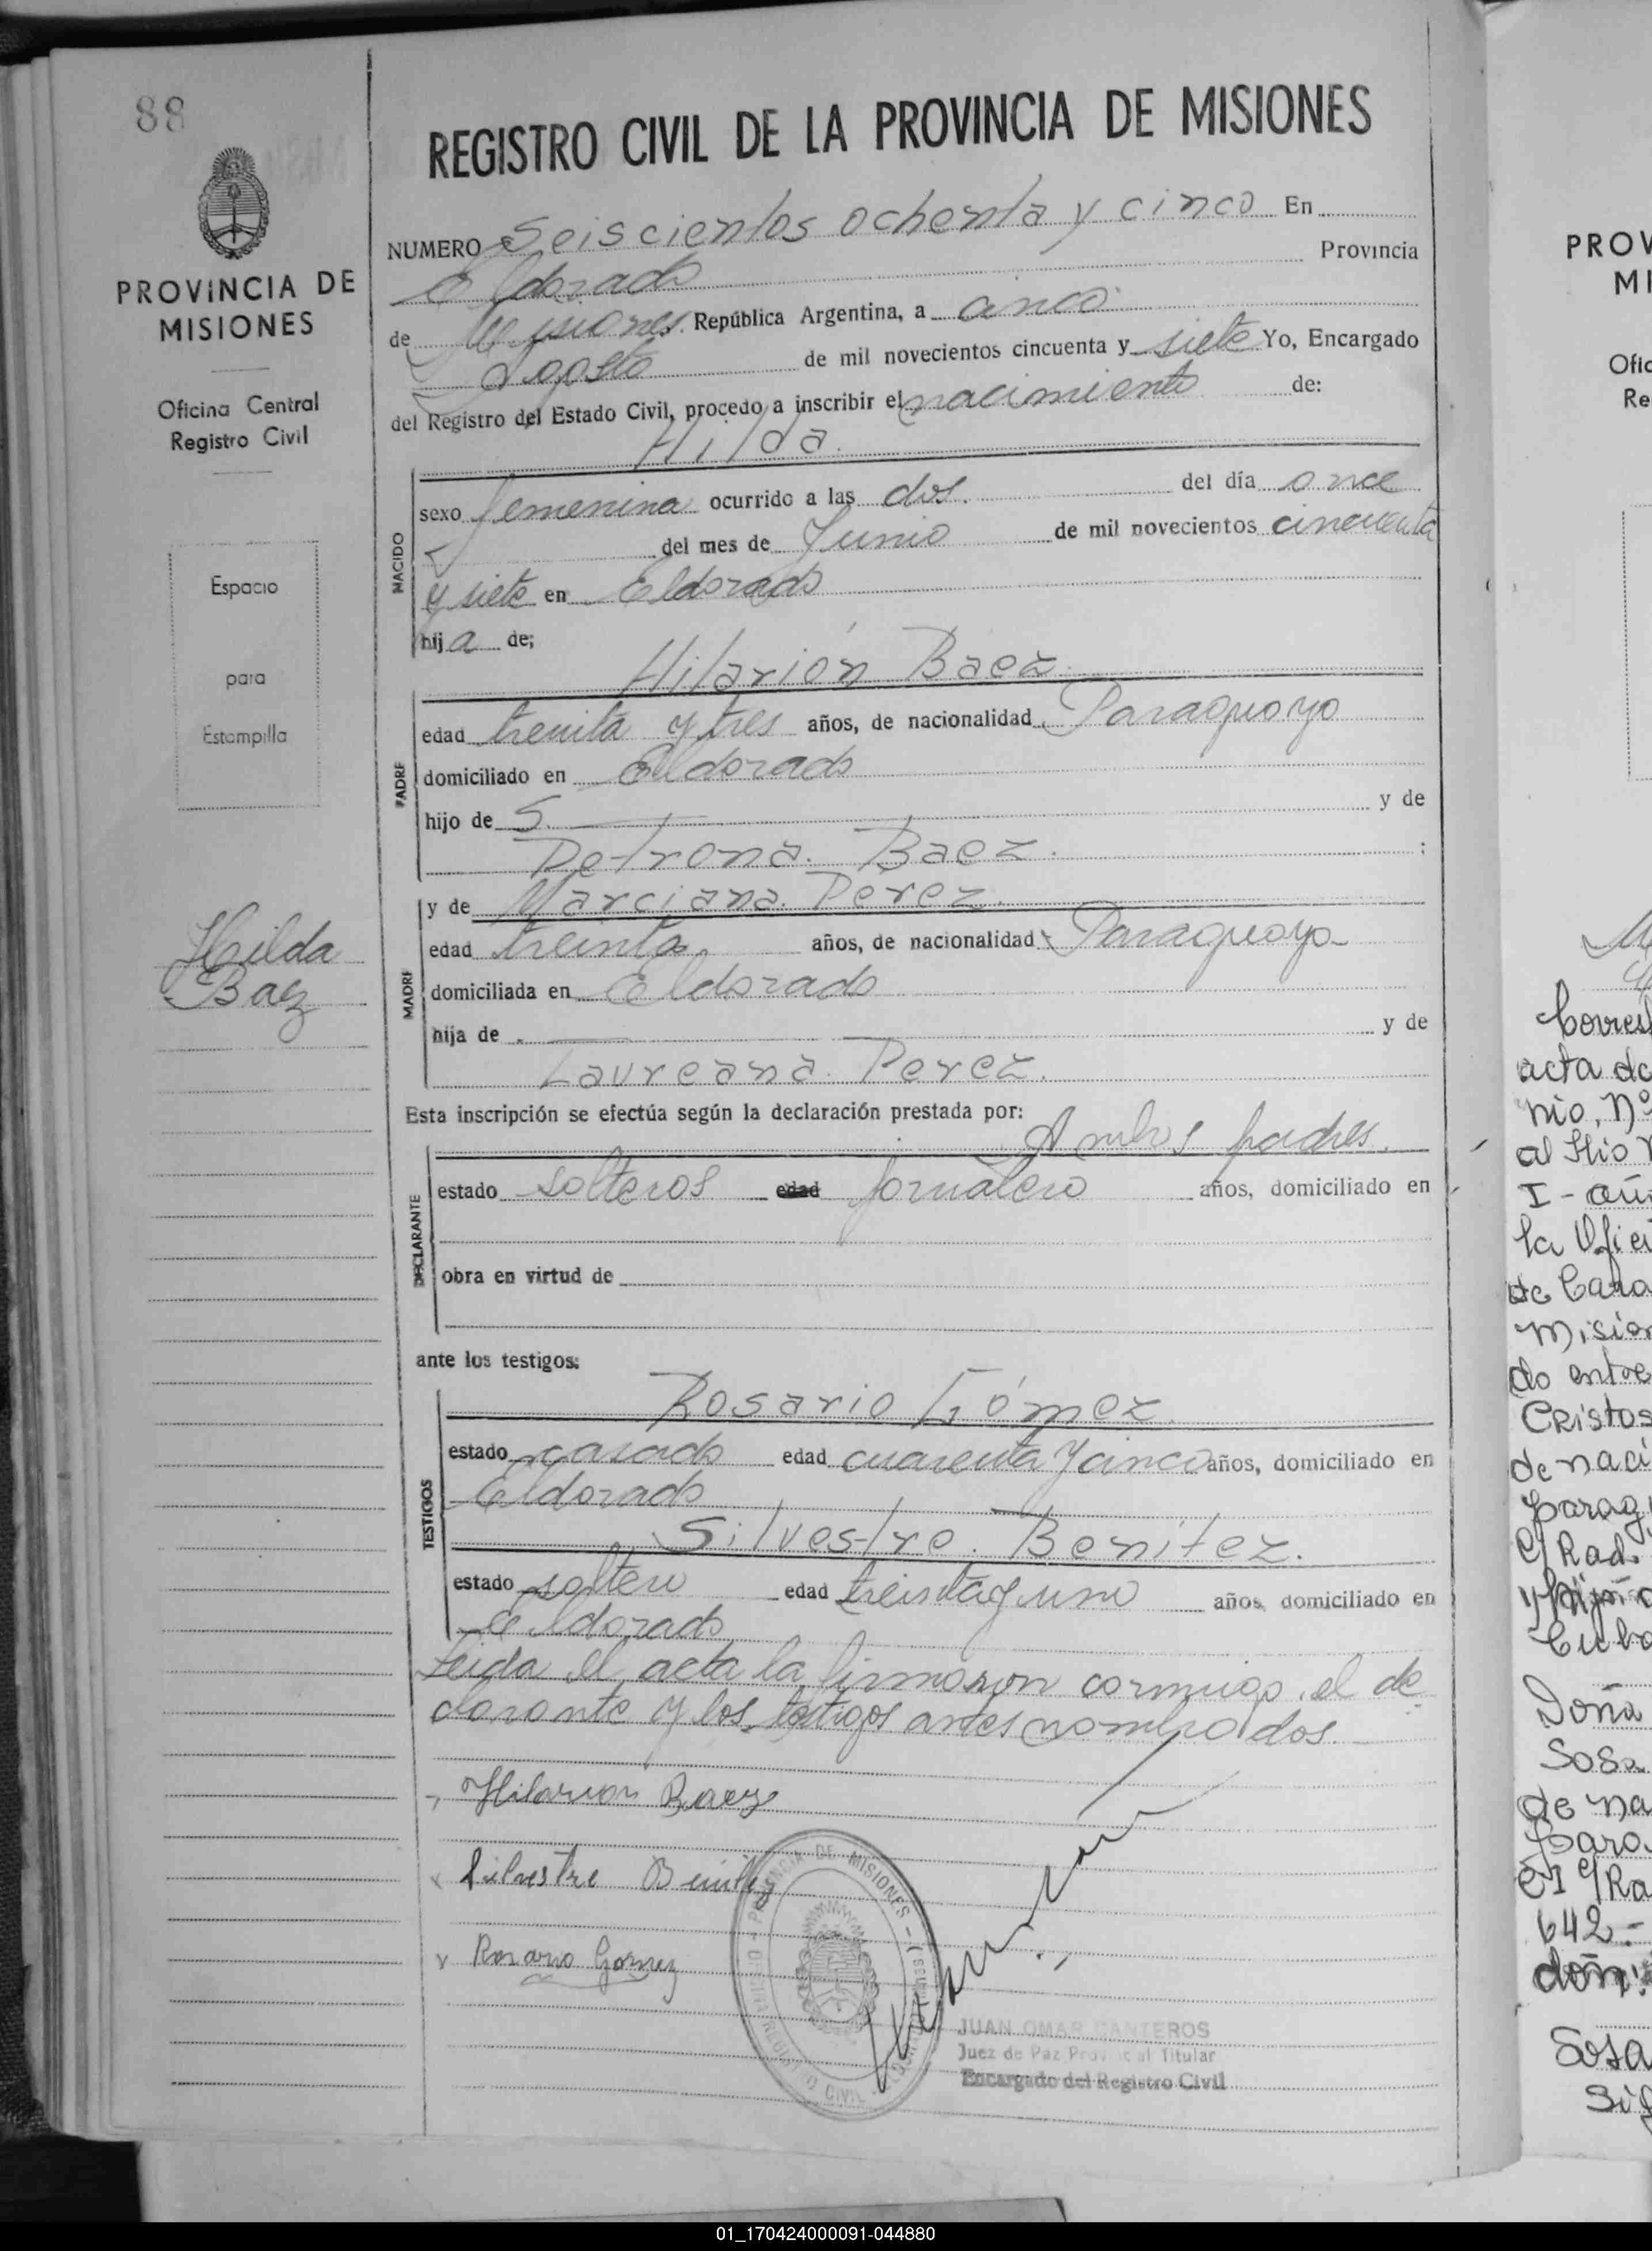 88
PROVINCIA DE
MISIONES
Oficina Central
Registro Civil
Espacio
para
Estampilla
Hilda
Baez
REGISTRO CIVIL DE LA PROVINCIA DE MISIONES
NUMERO Seiscientos ochenta y cinco En
Eldorado Provincia
de Misiones. República Argentina, a cinco
Agosto de mil novecientos cincuenta y siete Yo, Encargado
del Registro del Estado Civil, procedo a inscribir el nacimiento de:
Hilda.
NACIDO
sexo femenina ocurrido a las dos. del día once
del mes de Junio de mil novecientos cincuenta
y siete en Eldorado
hija de;
Hilarión Baez.
PADRE
edad treinta y tres años, de nacionalidad Paraguayo
domiciliado en Eldorado
hijo de S. y de
Petrona. Baez. ;
y de Marciana. Perez.
MADRE
edad treinta años, de nacionalidad Paraguaya
domiciliada en Eldorado
hija de y de
Laureana. Perez.
Esta inscripción se efectúa según la declaración prestada por:
Ambos padres.
DECLARANTE
estado solteros edad jornalero años, domiciliado en
obra en virtud de
ante los testigos:
Rosario Gómez.
TESTIGOS
estado casado edad cuarenta y cinco años, domiciliado en
Eldorado
Silvestre. Benitez.
estado soltero edad treinta y uno años, domiciliado en
Eldorado
Leida el acta la firmaron conmigo, el de
clarante y los testigos antes nombrados.
Hilarion Baez
Silvestre Benitez
Rosario Gomez
PROVINCIA DE MISIONES
REGISTRO CIVIL
JUAN OMAR CANTEROS
Juez de Paz Provincial Titular
Encargado del Registro Civil
PROV
MI
Ofic
Re
Corres
acta de
nio, Nº
al flio
I - añ
la Ofici
de Cara
Mision
do entre
Cristos
de naci
parag
C/ Rad.
Cuba
Doña
Sosa
de na
paro
CI C/ Ra
642.-
don:
Sosa
01_170424000091-044880